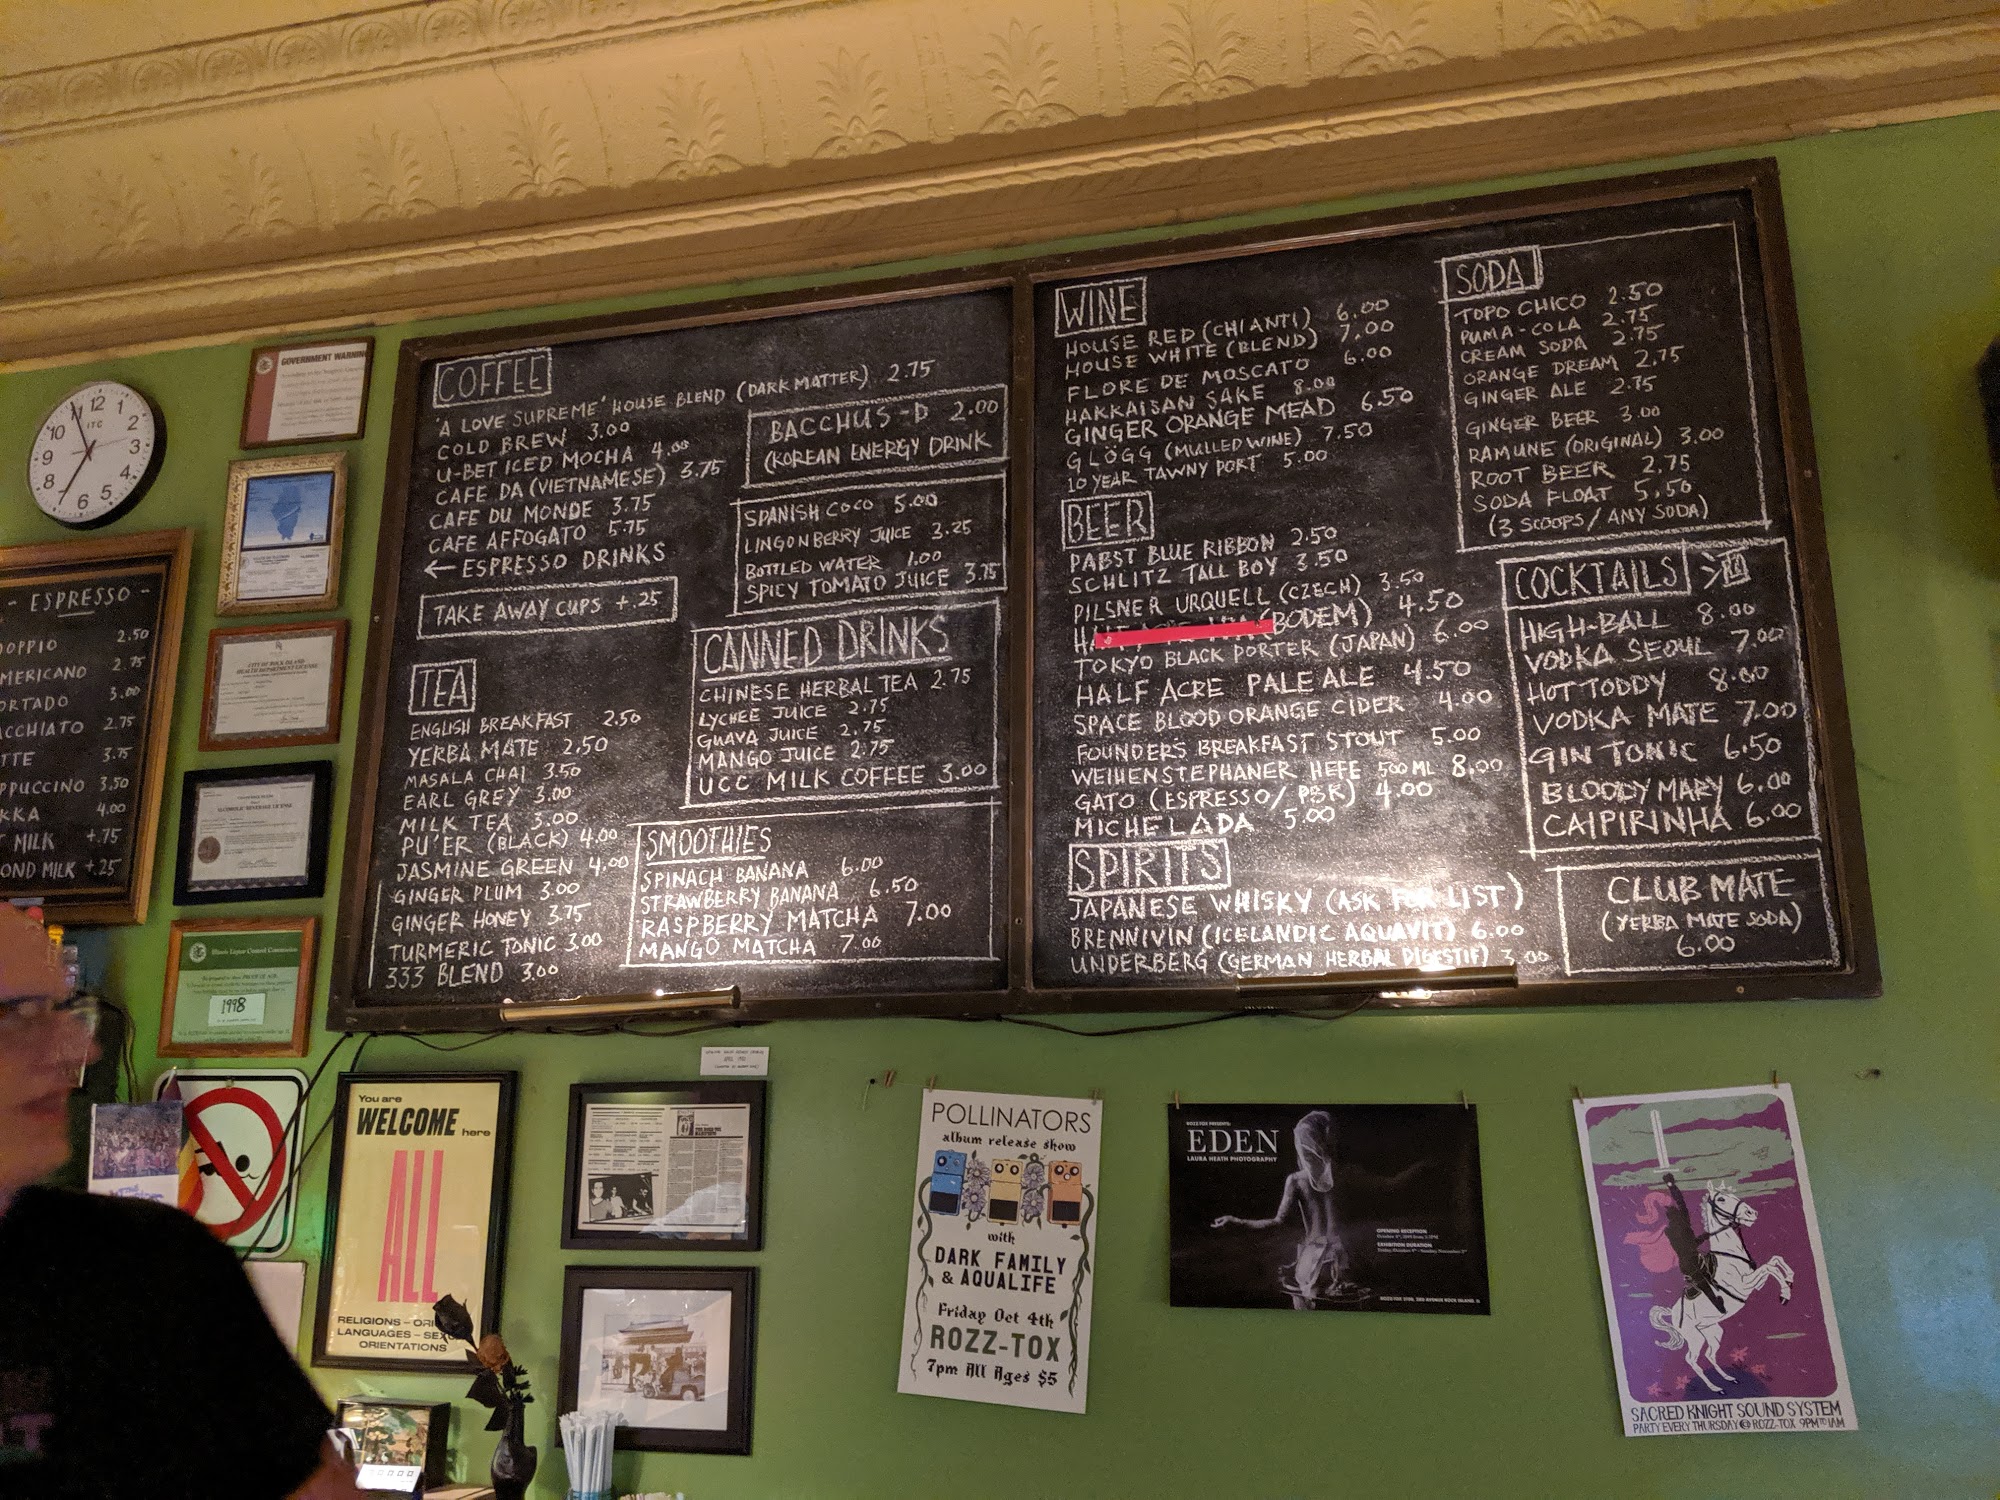 GOVERNMENT WARNING
12
1
2
3
4
5
6
7
8
9
10
11
ITC
CITY OF ROCK ISLAND
HEALTH DEPARTMENT LICENSE
ALCOHOLIC BEVERAGE LICENSE
Illinois Liquor Control Commission
1998
- ESPRESSO -
OPPIO 2.50
MERICANO 2.75
ORTADO 3.00
ACCHIATO 2.75
TTE 3.75
PPUCCINO 3.50
KKA 4.00
T MILK +.75
OND MILK +.25
COFFEE
'A LOVE SUPREME' HOUSE BLEND (DARK MATTER) 2.75
COLD BREW 3.00
U-BET ICED MOCHA 4.00
CAFE DA (VIETNAMESE) 3.75
CAFE DU MONDE 3.75
CAFE AFFOGATO 5.75
← ESPRESSO DRINKS
TAKE AWAY CUPS +.25
BACCHUS-D 2.00
(KOREAN ENERGY DRINK
SPANISH COCO 5.00
LINGONBERRY JUICE 3.25
BOTTLED WATER 1.00
SPICY TOMATO JUICE 3.75
TEA
ENGLISH BREAKFAST 2.50
YERBA MATE 2.50
MASALA CHAI 3.50
EARL GREY 3.00
MILK TEA 3.00
PU'ER (BLACK) 4.00
JASMINE GREEN 4.00
GINGER PLUM 3.00
GINGER HONEY 3.75
TURMERIC TONIC 3.00
333 BLEND 3.00
CANNED DRINKS
CHINESE HERBAL TEA 2.75
LYCHEE JUICE 2.75
GUAVA JUICE 2.75
MANGO JUICE 2.75
UCC MILK COFFEE 3.00
SMOOTHIES
SPINACH BANANA 6.00
STRAWBERRY BANANA 6.50
RASPBERRY MATCHA 7.00
MANGO MATCHA 7.00
WINE
HOUSE RED (CHIANTI) 6.00
HOUSE WHITE (BLEND) 7.00
FLORE DE MOSCATO 6.00
HAKKAISAN SAKE 8.00
GINGER ORANGE MEAD 6.50
GLÖGG (MULLED WINE) 7.50
10 YEAR TAWNY PORT 5.00
BEER
PABST BLUE RIBBON 2.50
SCHLITZ TALL BOY 3.50
PILSNER URQUELL (CZECH) 3.50
(BODEM) 4.50
TOKYO BLACK PORTER (JAPAN) 6.00
HALF ACRE PALE ALE 4.50
SPACE BLOOD ORANGE CIDER 4.00
FOUNDERS BREAKFAST STOUT 5.00
WEIHENSTEPHANER HEFE 500 ML 8.00
GATO (ESPRESSO/PBR) 4.00
MICHELADA 5.00
SPIRITS
JAPANESE WHISKY (ASK FOR LIST)
BRENNIVIN (ICELANDIC AQUAVIT) 6.00
UNDERBERG (GERMAN HERBAL DIGESTIF) 3.00
SODA
TOPO CHICO 2.50
PUMA-COLA 2.75
CREAM SODA 2.75
ORANGE DREAM 2.75
GINGER ALE 2.75
GINGER BEER 3.00
RAMUNE (ORIGINAL) 3.00
ROOT BEER 2.75
SODA FLOAT 5.50
(3 SCOOPS/ANY SODA)
COCKTAILS
HIGH-BALL 8.00
VODKA SEOUL 7.00
HOT TODDY 8.00
VODKA MATE 7.00
GIN TONIC 6.50
BLOODY MARY 6.00
CAIPIRINHA 6.00
CLUB MATE
(YERBA MATE SODA)
6.00
You are
WELCOME here
ALL
RELIGIONS – ORI
LANGUAGES – SEX
ORIENTATIONS
POLLINATORS
album release show
with
DARK FAMILY
& AQUALIFE
Friday Oct 4th
ROZZ-TOX
7pm All Ages $5
ROZZ-TOX PRESENTS:
EDEN
LAURA HEATH PHOTOGRAPHY
OPENING RECEPTION
EXHIBITION DURATION
SACRED KNIGHT SOUND SYSTEM
PARTY EVERY THURSDAY @ ROZZ-TOX 9PM TO 1AM